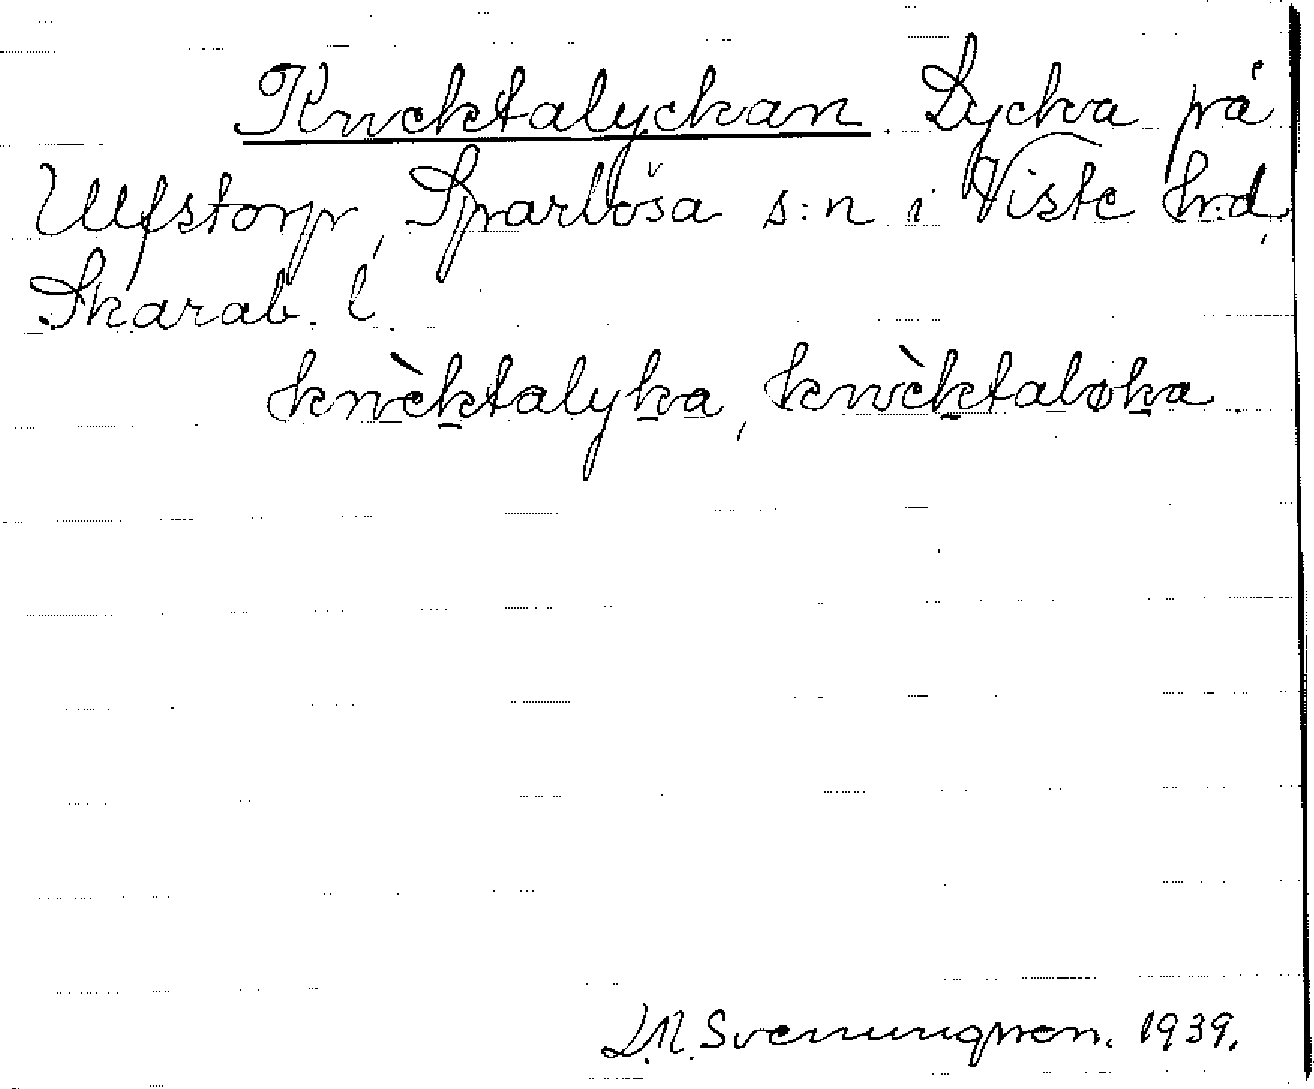 Knektalyckan. Lycka på
Ulfstorp, Sparlösa s:n i Viste hrd,
Skarab. l.
knèktalyka, knèktaløka.
L.N. Svenungsson. 1939.